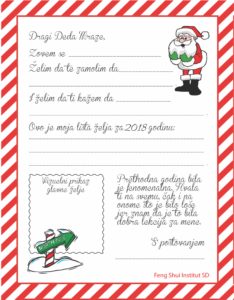 Dragi Deda Mraze,
Zovem se
Želim da te zamolim da
I želim da ti kažem da
Ovo je moja lista želja za 2018 godinu:
Vizuelni prikaz
glavne želje
Prethodna godina bila
je fenomenalna. Hvala
ti na svemu, čak i na
onome što je bilo loše
jer znam da je to bila
dobra lekcija za mene.
S poštovanjem
Feng Shui Institut SD